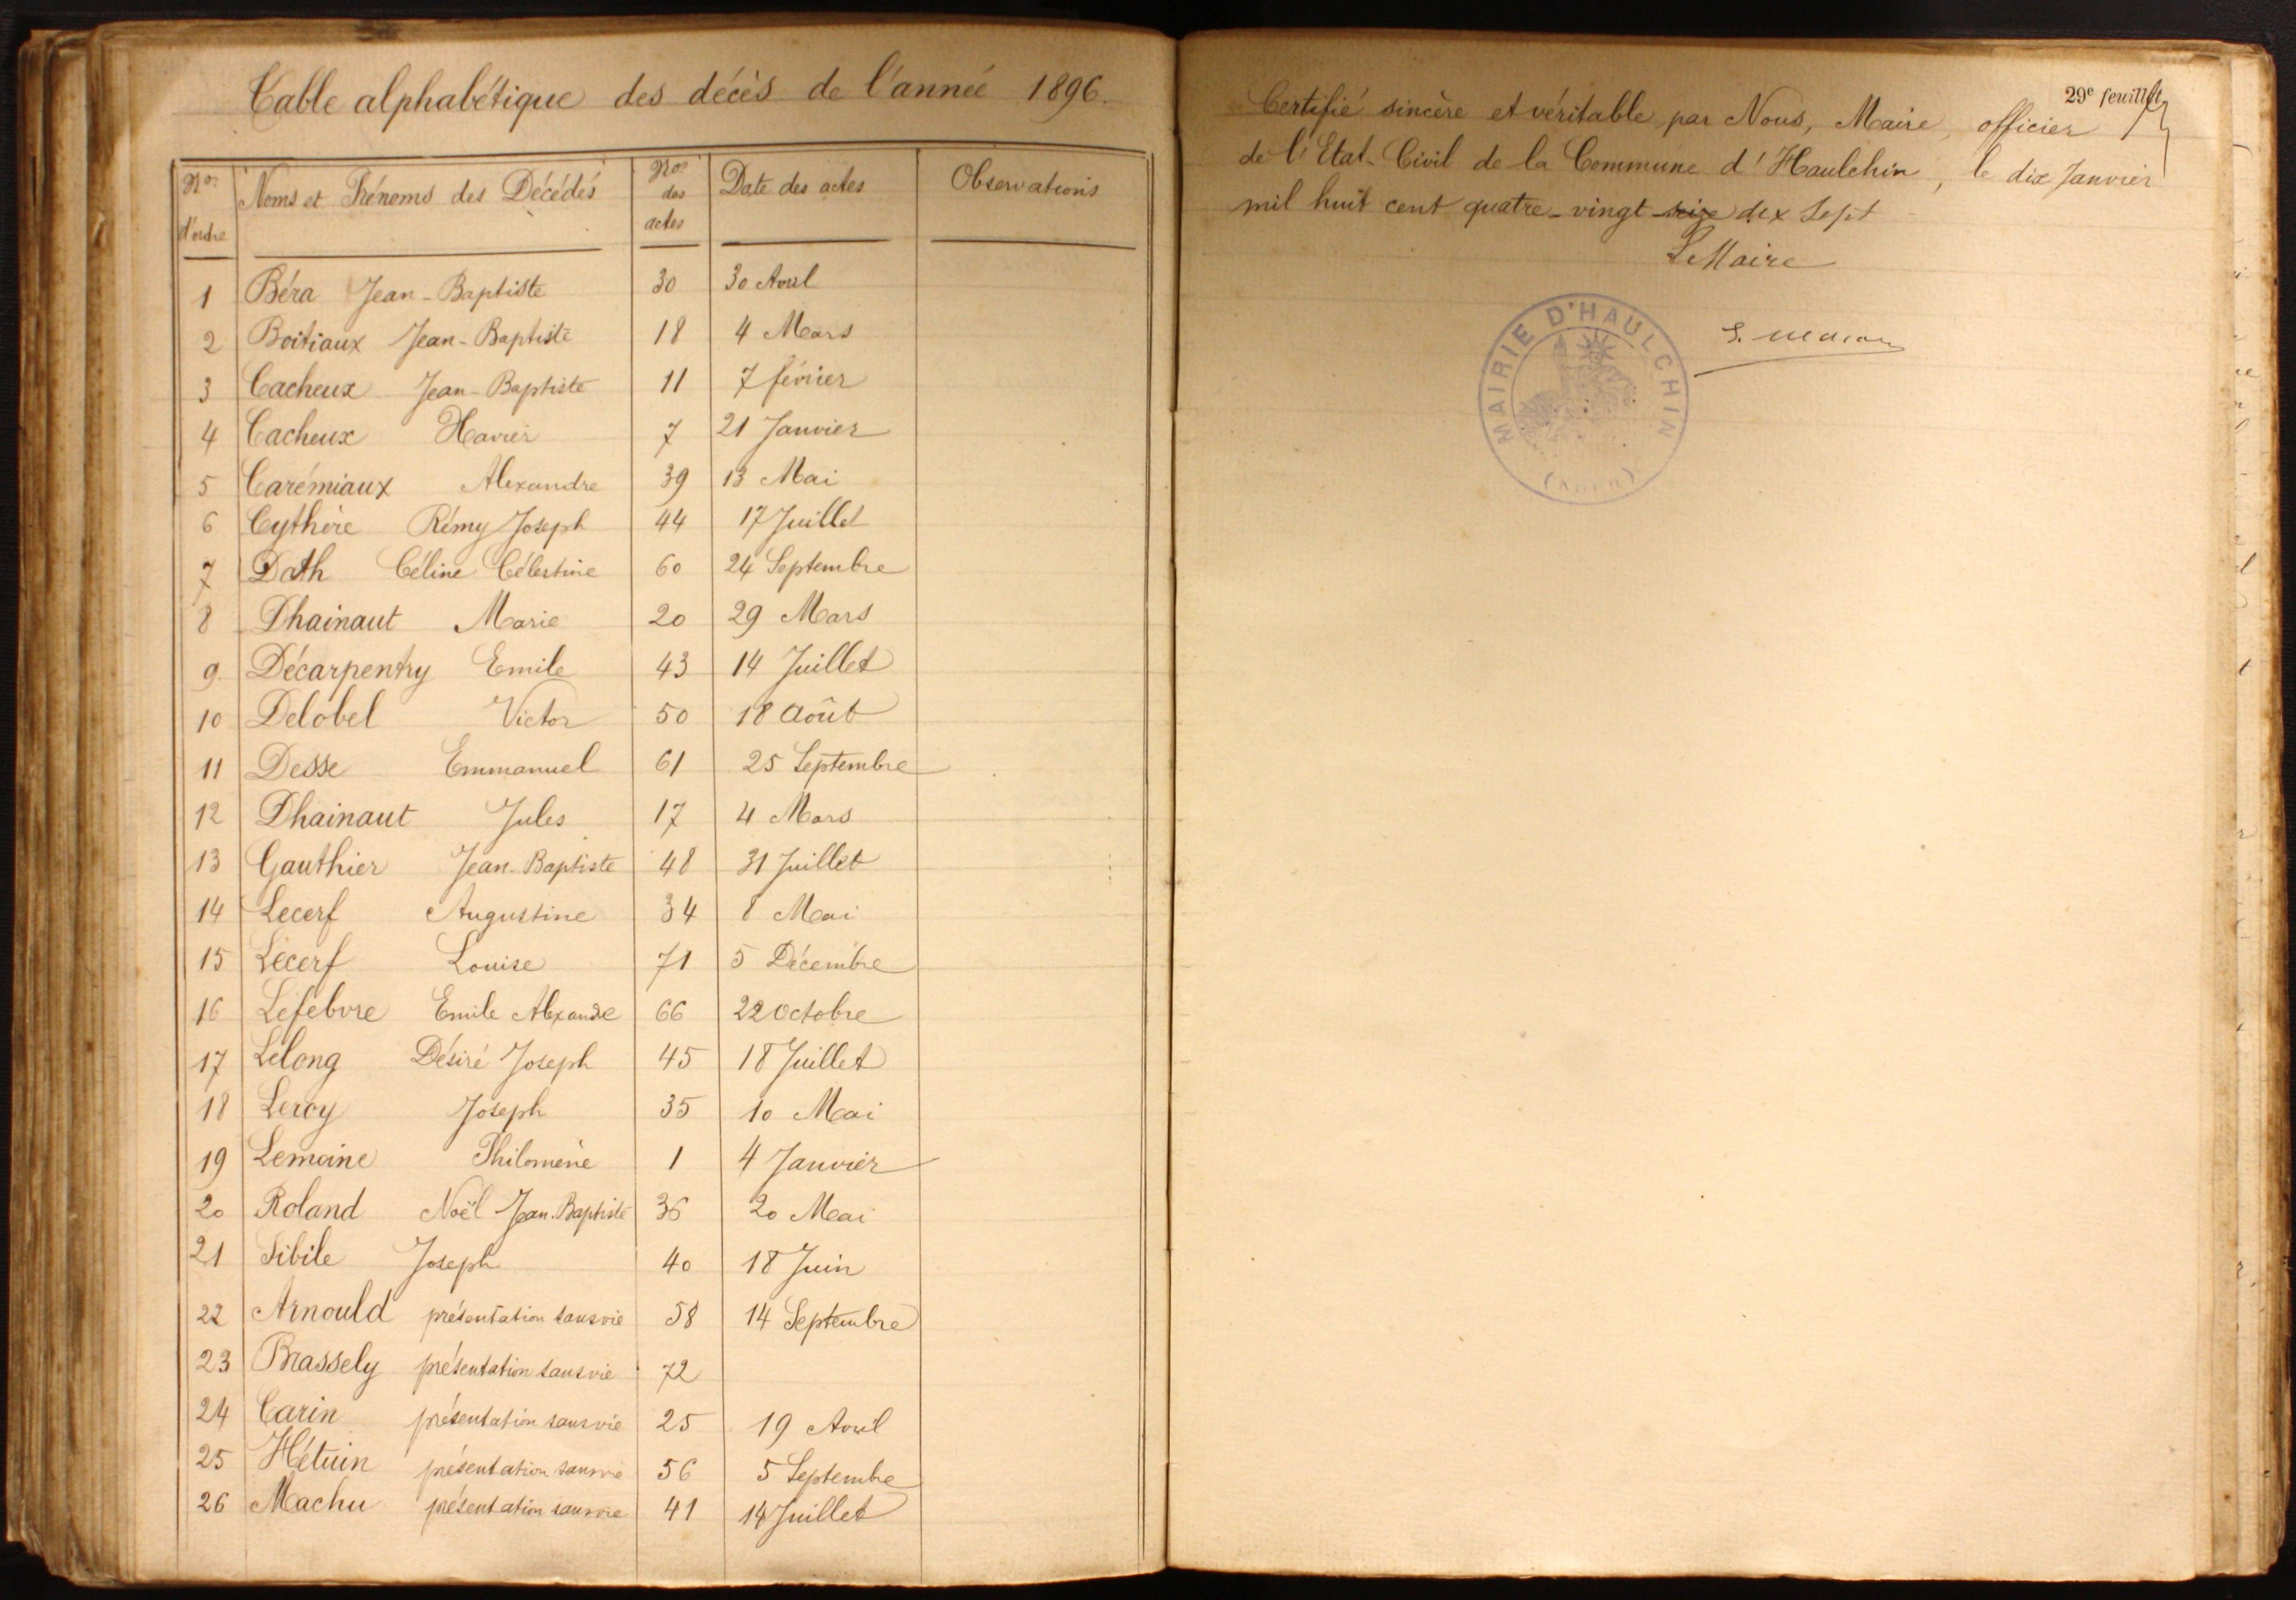 Table alphabétique des décès de l'année 1896.
Nos d'ordre Noms et Prénoms des Décédés Nos des actes Date des actes Observations
1 Béra Jean-Baptiste 30 30 Avril
2 Boitiaux Jean-Baptiste 18 4 Mars
3 Cacheux Jean-Baptiste 11 7 février
4 Cacheux Xavier 7 21 Janvier
5 Carémiaux Alexandre 39 13 Mai
6 Cythère Rémy Joseph 44 17 Juillet
7 Dath Céline Célestine 60 24 Septembre
8 Dhainaut Marie 20 29 Mars
9 Décarpentry Emile 43 14 Juillet
10 Delobel Victor 50 18 Août
11 Desse Emmanuel 61 25 Septembre
12 Dhainaut Jules 17 4 Mars
13 Gauthier Jean-Baptiste 48 31 Juillet
14 Lecerf Augustine 34 8 Mai
15 Lecerf Louise 71 5 Décembre
16 Lefebvre Emile Alexandre 66 22 Octobre
17 Lelong Désiré Joseph 45 18 Juillet
18 Leroy Joseph 35 10 Mai
19 Lemoine Philomène 1 4 Janvier
20 Roland Noël Jean-Baptiste 36 20 Mai
21 Sibile Joseph 40 18 Juin
22 Arnould présentation sans vie 58 14 Septembre
23 Brassely présentation sans vie 72
24 Carin présentation sans vie 25 19 Avril
25 Hétuin présentation sans vie 56 5 Septembre
26 Machu présentation sans vie 41 14 Juillet
29e feuillet
Certifié sincère et véritable par Nous, Maire, officier
de l'Etat-Civil de la Commune d'Haulchin, le dix Janvier
mil huit cent quatre-vingt seize dix sept
Le Maire
MAIRIE D'HAULCHIN